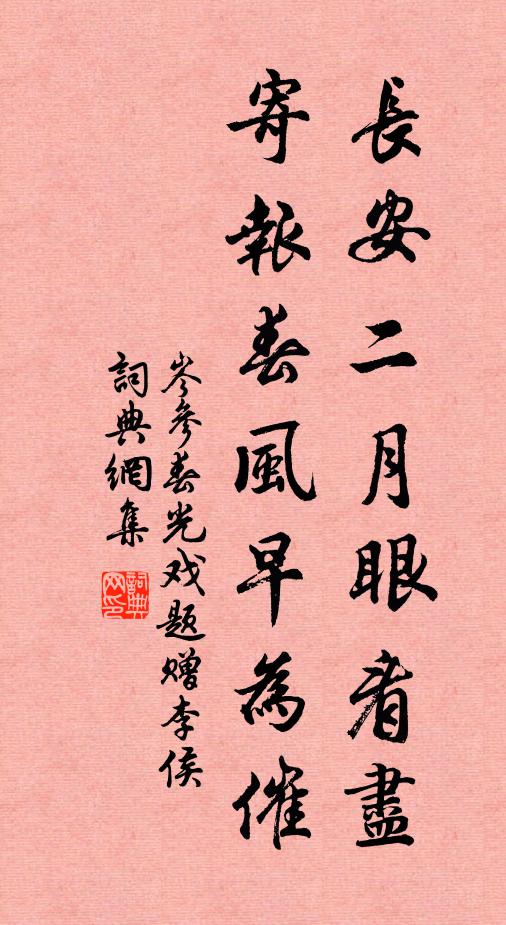 長安二月眼看盡
寄報春風早為催
岑參春光戏題赠李侯
詞典網集
詞典网印